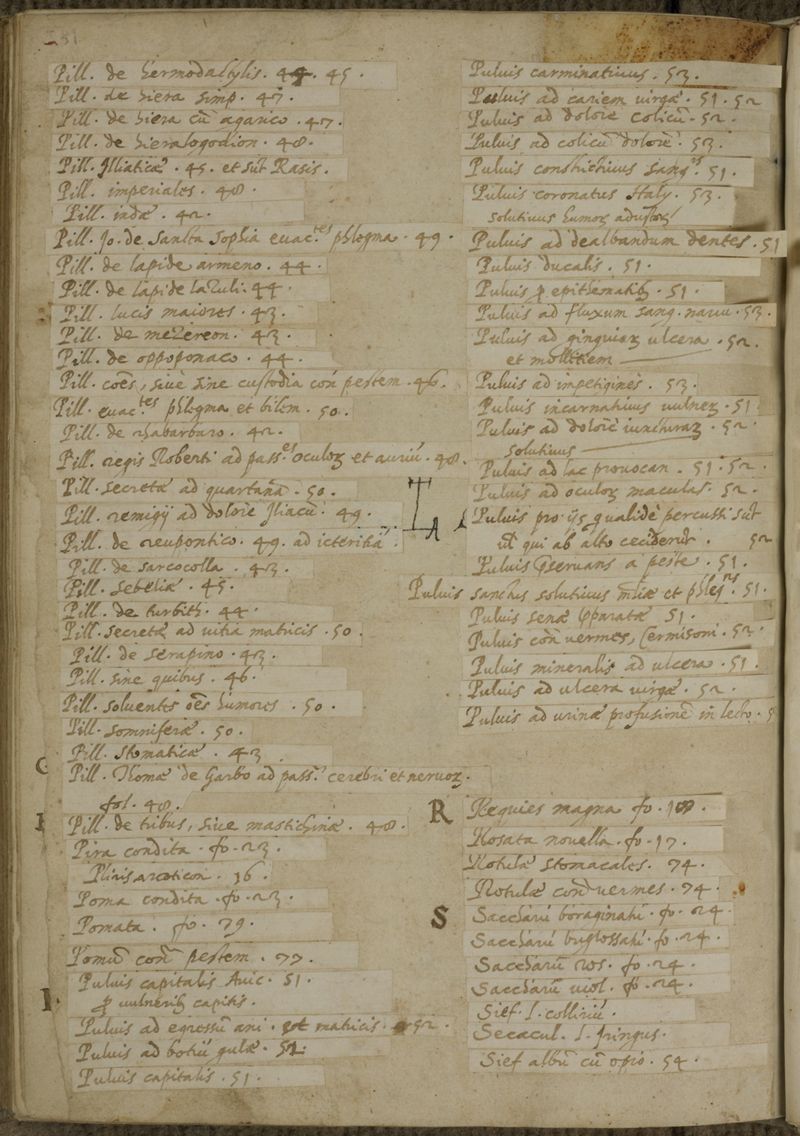 Pill. de hermodactylis. 44. 45.
Pill. de hiera simp. 47.
Pill. de hiera cũ agarico. 47.
Pill. de hieralogodion. 48.
Pill. Iliaticæ. 45. et sũt Rasis.
Pill. imperiales. 48.
Pill. indæ. 42.
Pill. Jo. de Sancta Sophia euac.tes phlegma. 49.
Pill. de lapide armeno. 44.
Pill. de lapide lazuli. 44.
Pill. lucis maiores. 43.
Pill. de mezereon. 43.
Pill. de oppoponaco. 44.
Pill. cões, siue sine custodia con̄ pestem. 46.
Pill. euac.tes phlegma et bilem. 50.
Pill. de rhabarbaro. 42.
Pill. regis Roberti ad pass.es oculoꝝ et auriũ. 48.
Pill. secretæ ad quartanã. 50.
Pill. remigij ad dolorẽ Iliacũ. 49.
Pill. de reupontico. 49. ad icteritiã.
Pill. de sarcocolla. 43.
Pill. sebeliæ. 45.
Pill. de turbith. 44.
Pill. secretæ ad uitia matricis. 50.
Pill. de serapino. 43.
Pill. sine quibus. 46.
Pill. soluentes oẽs humores. 50.
Pill. somniferæ. 50.
Pill. stomaticæ. 43
G
Pill. Thomæ de Garbo ad pass.ẽ cerebri et neruoꝝ.
fol. 48.
Pill. de tribus, siue mastichinæ. 48.
Pira condita. fo. 23.
Pliris arcoticon. 16.
Poma condita. fo. 23.
Pomata. fo. 79.
Pomũ con̄ pestem. 77.
Puluis capitalis Auic. 51.
ꝓ uulneribꝫ capitis.
Puluis ad egressũ ani. et matricis. 52.
Puluis ad botiũ gulæ. 52.
Puluis capitalis. 51.
Puluis carminatiuus. 53.
Puluis ad cariem uirgæ. 51. 52
Puluis ad dolorẽ colicũ. 52.
Puluis ad colicũ dolorẽ. 53.
Puluis constrictiuus sang.s 51.
Puluis coronatus Italy. 53.
solutiuus humoꝝ adustoꝝ
Puluis ad dealbandum dentes. 51
Puluis ducalis. 51.
Puluis ꝓ epithematibꝫ. 51.
Puluis ad fluxum sang. nariũ. 53.
Puluis ad gingiuaꝝ ulcera. 52.
et mollitiem
Puluis ad impetiginẽs. 53.
Puluis incarnatiuus uulneꝝ. 51
Puluis ad dolorẽ iuncturaꝝ. 52
solutiuus
Puluis ad lac prouocan. 51. 52.
Puluis ad oculoꝝ maculas. 52.
Puluis pro ijs qualidẽ percussi sũt
ut qui ab alto ceciderũt. 52
Puluis p̃seruans a peste. 51.
Puluis sanctus solutiuus mẽliæ et phleg.tis 51.
Puluis senæ p̃paratæ 51.
Puluis con̄ uermes, Cermisoni. 52.
Puluis mineralis ad ulcera. 51.
Puluis ad ulcera uirgæ. 52.
Puluis ad urinæ profusionẽ in lecto. 5
R
Requies magna fo. 18.
Rosata nouella. fo. 17.
Rotulæ stomacales. 74.
Rotulæ con̄ uermes. 74.
S
Saccharũ boraginatũ. fo. 24.
Saccharũ buglossatũ. fo. 24.
Saccharũ ros. fo. 24.
Saccharũ uiol. fo. 24.
Sief. I. colliriũ.
Secacul. I. Iringus.
Sief albũ cũ opio. 54.